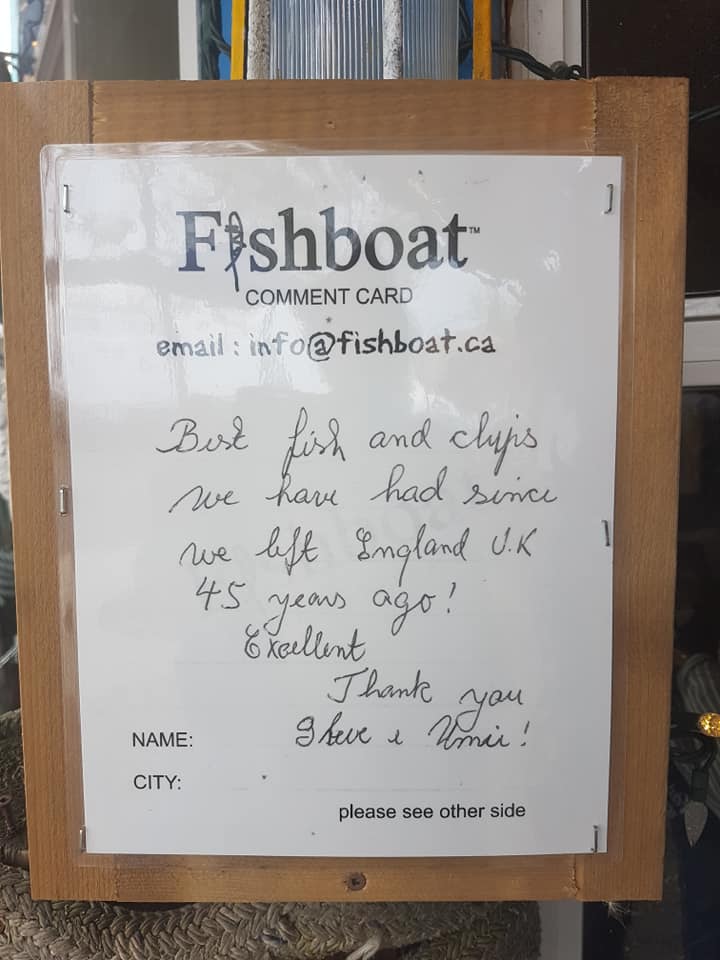 Fishboat™
COMMENT CARD
email : info@fishboat.ca
Best fish and chips
we have had since
we left England U.K
45 years ago!
Excellent
Thank you
NAME: Steve &
CITY:
please see other side